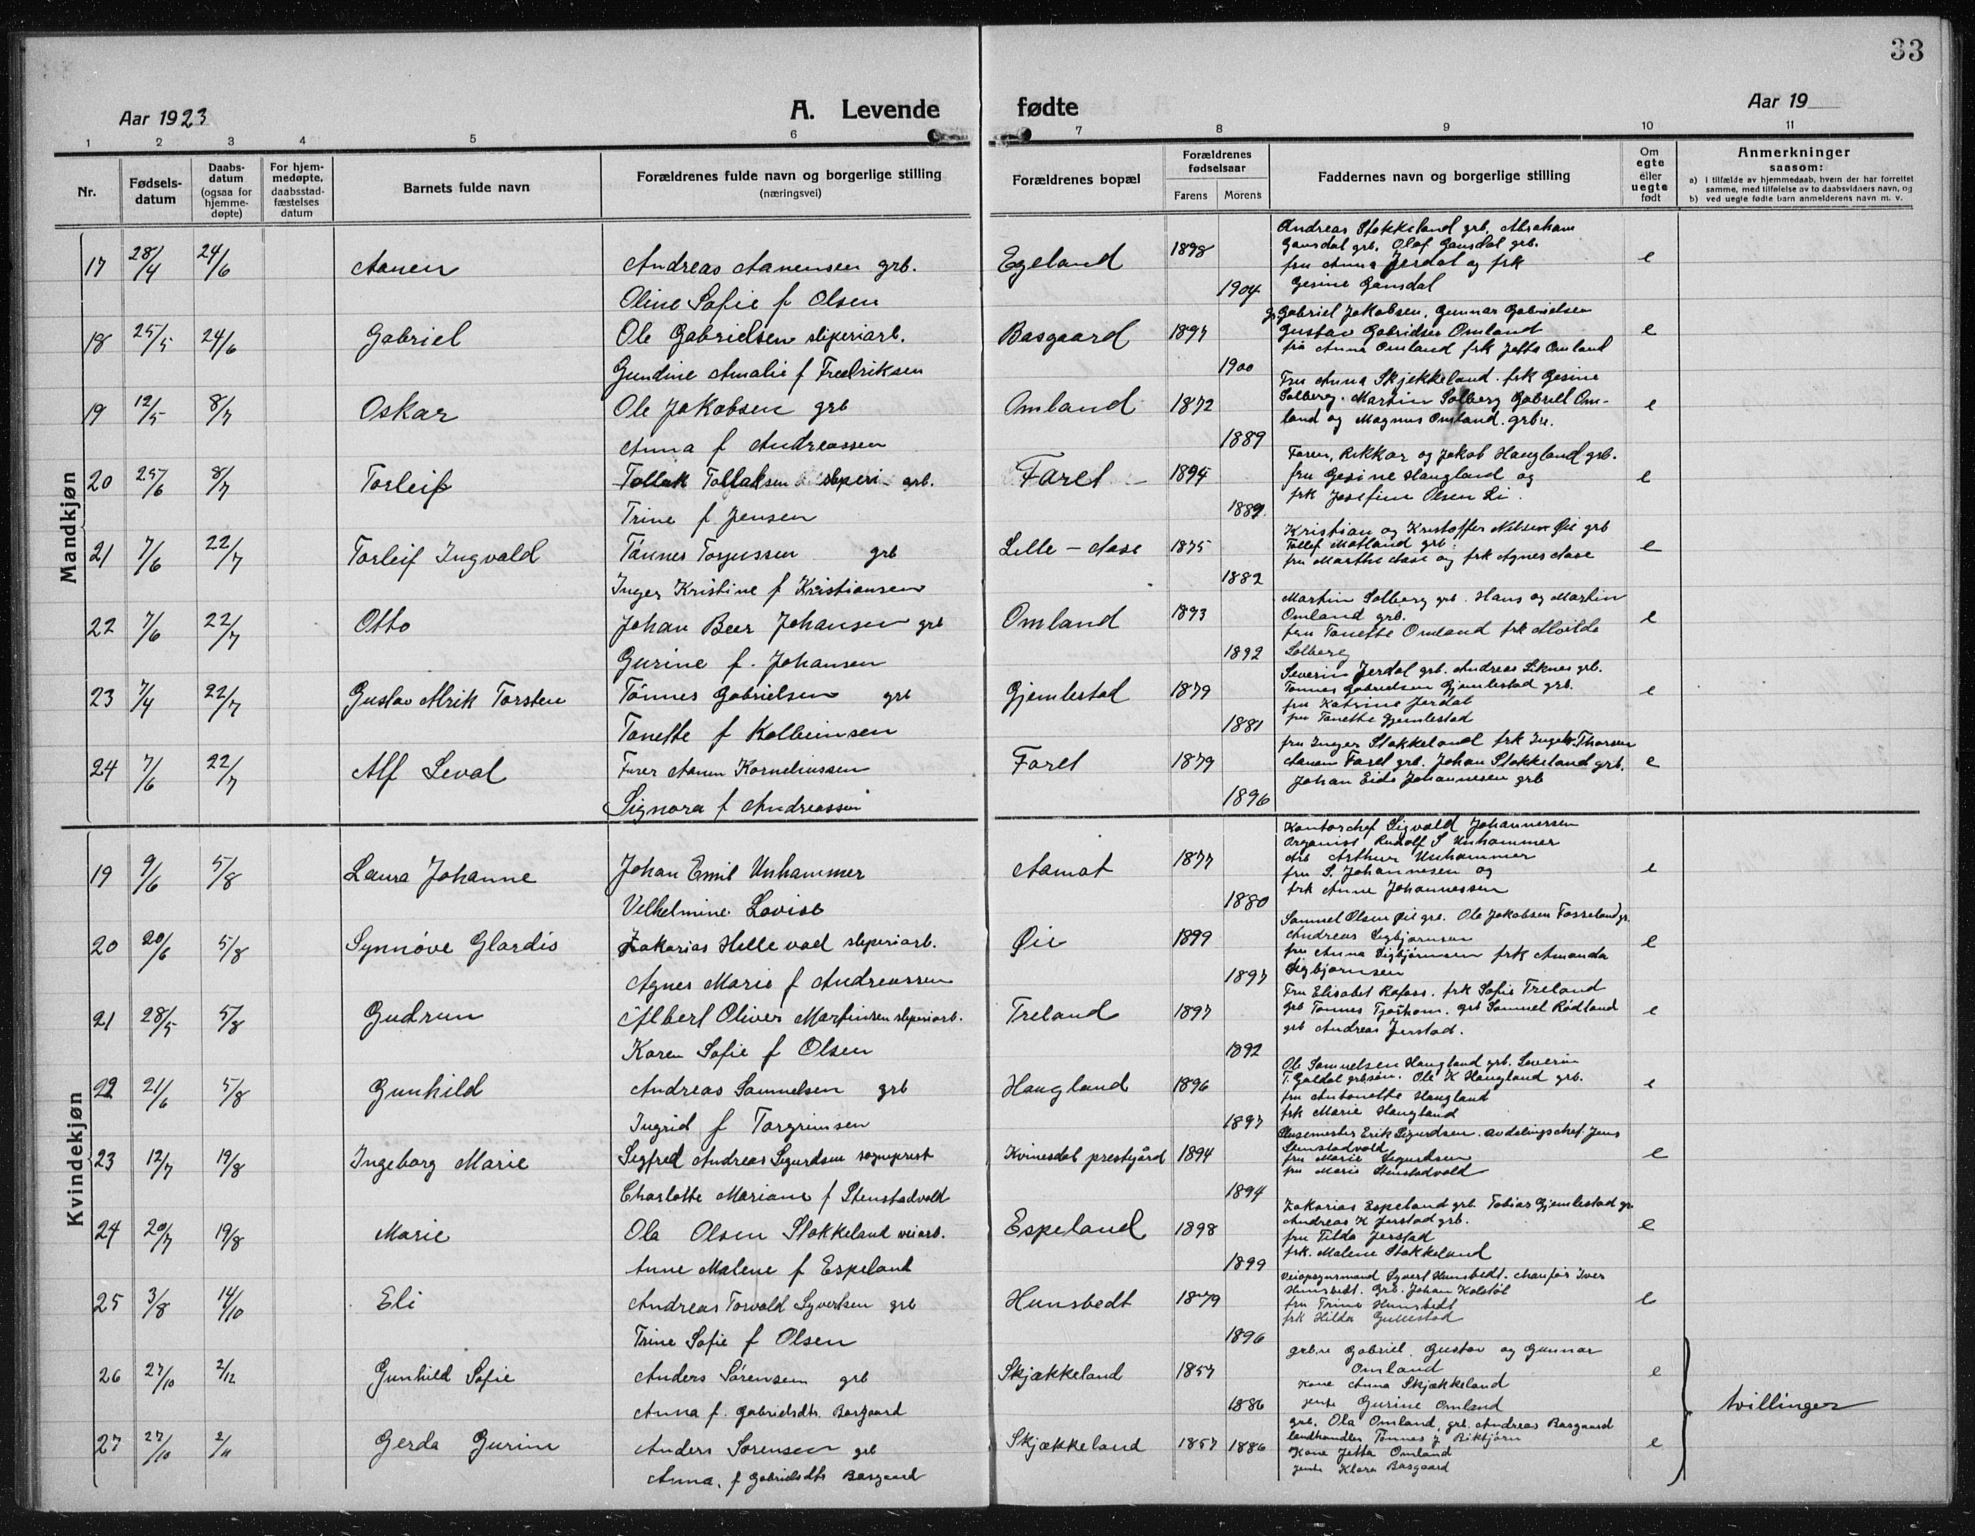 33
Aar 1923 A. Levende fødte Aar 19
1 2 3 4 5 6 7 8 9 10 11
Nr. Fødsels-datum Daabs-datum (ogsaa for hjemme-døpte) For hjem-medøpte, daabsstad-fæstelses datum Barnets fulde navn Forældrenes fulde navn og borgerlige stilling (næringsvei) Forældrenes bopæl Forældrenes fødselsaar Farens Morens Faddernes navn og borgerlige stilling Om egte eller uegte født Anmerkninger saasom:
a) I tilfælde av hjemmedaab, hvem der har forrettet samme, med tilføielse av to daabsvidners navn, og
b) ved uegte fødte barn anmelderens navn m. v.
Mandkjøn
Andreas Stokkeland grb. Abraham
Gausdal grb. Olaf Gausdal grb.
17 28/4 24/6 Aanen Andreas Aanensen grb. Egeland 1898 fru Anna Jerdal og frk e
Oline Sofie f Olsen 1904 Gesine Gausdal
Gabriel Jakobsen, Gunnar Gabrielsen
18 25/5 24/6 Gabriel Ole Gabrielsen sliperiarb. Basgaard 1897 Gustav Gabrielsen Omland e
fru Anna Omland frk Jette Omland
Gundine Amalie f Fredriksen 1900
Fru Anna Skjekkeland. frk Gesine
19 12/5 8/7 Oskar Ole Jakobsen grb Omland 1872 Solberg. Martin Solberg Gabriel Om-
land og Magnus Omland. grbr. e
Anna f Andreassen 1889
Faren, Rikkar og Jakob Haugland grb.
20 25/6 8/7 Torleif Tollak Tollaksen sliperi grb. Faret 1894 fru Gesine Haugland og e
frk Josefine Olsen Li.
Trine f Jensen 1889
Kristian og Kristoffer Nilsen Øie grb
21 7/6 22/7 Torleif Ingvald Tønnes Torjussen grb Lille-Aase 1875 Tollef Motland grb. e
fru Marthe Aase og frk Agnes Aase
Inger Kristine f Kristiansen 1882
Martin Solberg grb. Hans og Martin
22 7/6 22/7 Otto Johan Beer Johansen grb Omland 1893 Omland grb. e
fru Tonette Omland frk Alvilde
Gurine f. Johansen 1892 Solberg
Severin Jerdal grb. Andreas Liknes grb.
23 7/4 22/7 Gustav Alrik Torsten Tønnes Gabrielsen grb Gjemlestad 1879 Tønnes Gabrielsen Gjemlestad grb. e
fru Katrine Jerdal
Tonette f Kolbeinsen 1881 fru Tonette Gjemlestad
fru Inger Stokkeland frk Ingeb. Thorsen
24 7/6 22/7 Alf Leval Furer Aanen Korneliussen Faret 1879 Aanen Faret grb. Johan Stokkeland grb. e
Johan Eide Johannesen grb
Signora f Andreassen 1896
Kvindekjøn
Kontorchef Sigvald Johannessen
Organist Rudolf S Unhammer
19 9/6 5/8 Laura Johanne Johan Emil Unhammer Aamot 1877 Arb Arthur Unhammer e
fru S. Johannesen og
Vilhelmine Lovise 1880 frk Anne Johannessen
Samuel Olsen Øie grb. Ole Jakobsen Fosseland gr.
20 20/6 5/8 Synnøve Glardis Zakarias Hellevad sliperiarb. Øie 1899 Andreas Sigbjørnsen e
fru Anna Sigbjørnsen frk Amanda
Agnes Marie f Andreassen 1897 Sigbjørnsen
Fru Elisabet Rafoss. frk Sofie Treland
21 28/5 5/8 Gudrun Albert Oliver Martinsen sliperiarb. Treland 1897 grb Tønnes Tjørhom. grb Samuel Rødland e
grb Andreas Jerstad.
Karen Sofie f Olsen 1892
Ole Samuelsen Haugland grb. Severin
22 21/6 5/8 Gunhild Andreas Samuelsen grb Haugland 1896 T. Galdal grbsøn. Ole K Haugland grb. e
fru Antonette Haugland
Ingrid f Torgrimsen 1897 frk Marie Haugland
Slusemester Erik Sigurdsen. avdelingschef. Jens
23 12/7 19/8 Ingeborg Marie Sigfred Andreas Sigurdsen sogneprest Kvinesdal prestgård 1894 Stenstadvold e
fru Marie Sigurdsen
fru Marie Stenstadvold
Charlotte Mariane f Stenstadvold 1894
Zakarias Espeland grb. Tobias Gjemlestad gr.
24 20/7 19/8 Marie Ola Olsen Stokkeland veiarb. Espeland 1898 Andreas K Jerstad grb. e
fru Tilda Jerstad
Anne Malene f Espeland 1899 frk. Malene Stokkeland
Veiopsynsmand Syvert Hunsbedt. chauför Iver
25 3/8 14/10 Eli Andreas Torvald Syvertsen grb Hunsbedt 1879 Hunsbedt. Grb. Johan Kolstøl e
fru Trine Hunsbedt
Trine Sofie f Olsen 1896 frk Hilda Gullestad
grbr. Gabriel. Gustav og Gunnar
26 27/10 2/12 Gunhild Sofie Anders Sørensen grb Skjækkeland 1857 Omland e
Kone Anna Skjækkeland
Anna f. Gabrielsdtr. Basgaard 1886 jente Gurine Omland
tvillinger
grb. Ola Omland, grb. Andreas Basgaard
27 27/10 2/11 Gerda Gurine Anders Sørensen grb Skjækkeland 1857 1886 landhandler Tønnes J Birkjørn e
Kone Jette Omland
Anna, f Gabrielsdtr Basgaard jente Klara Basgaard